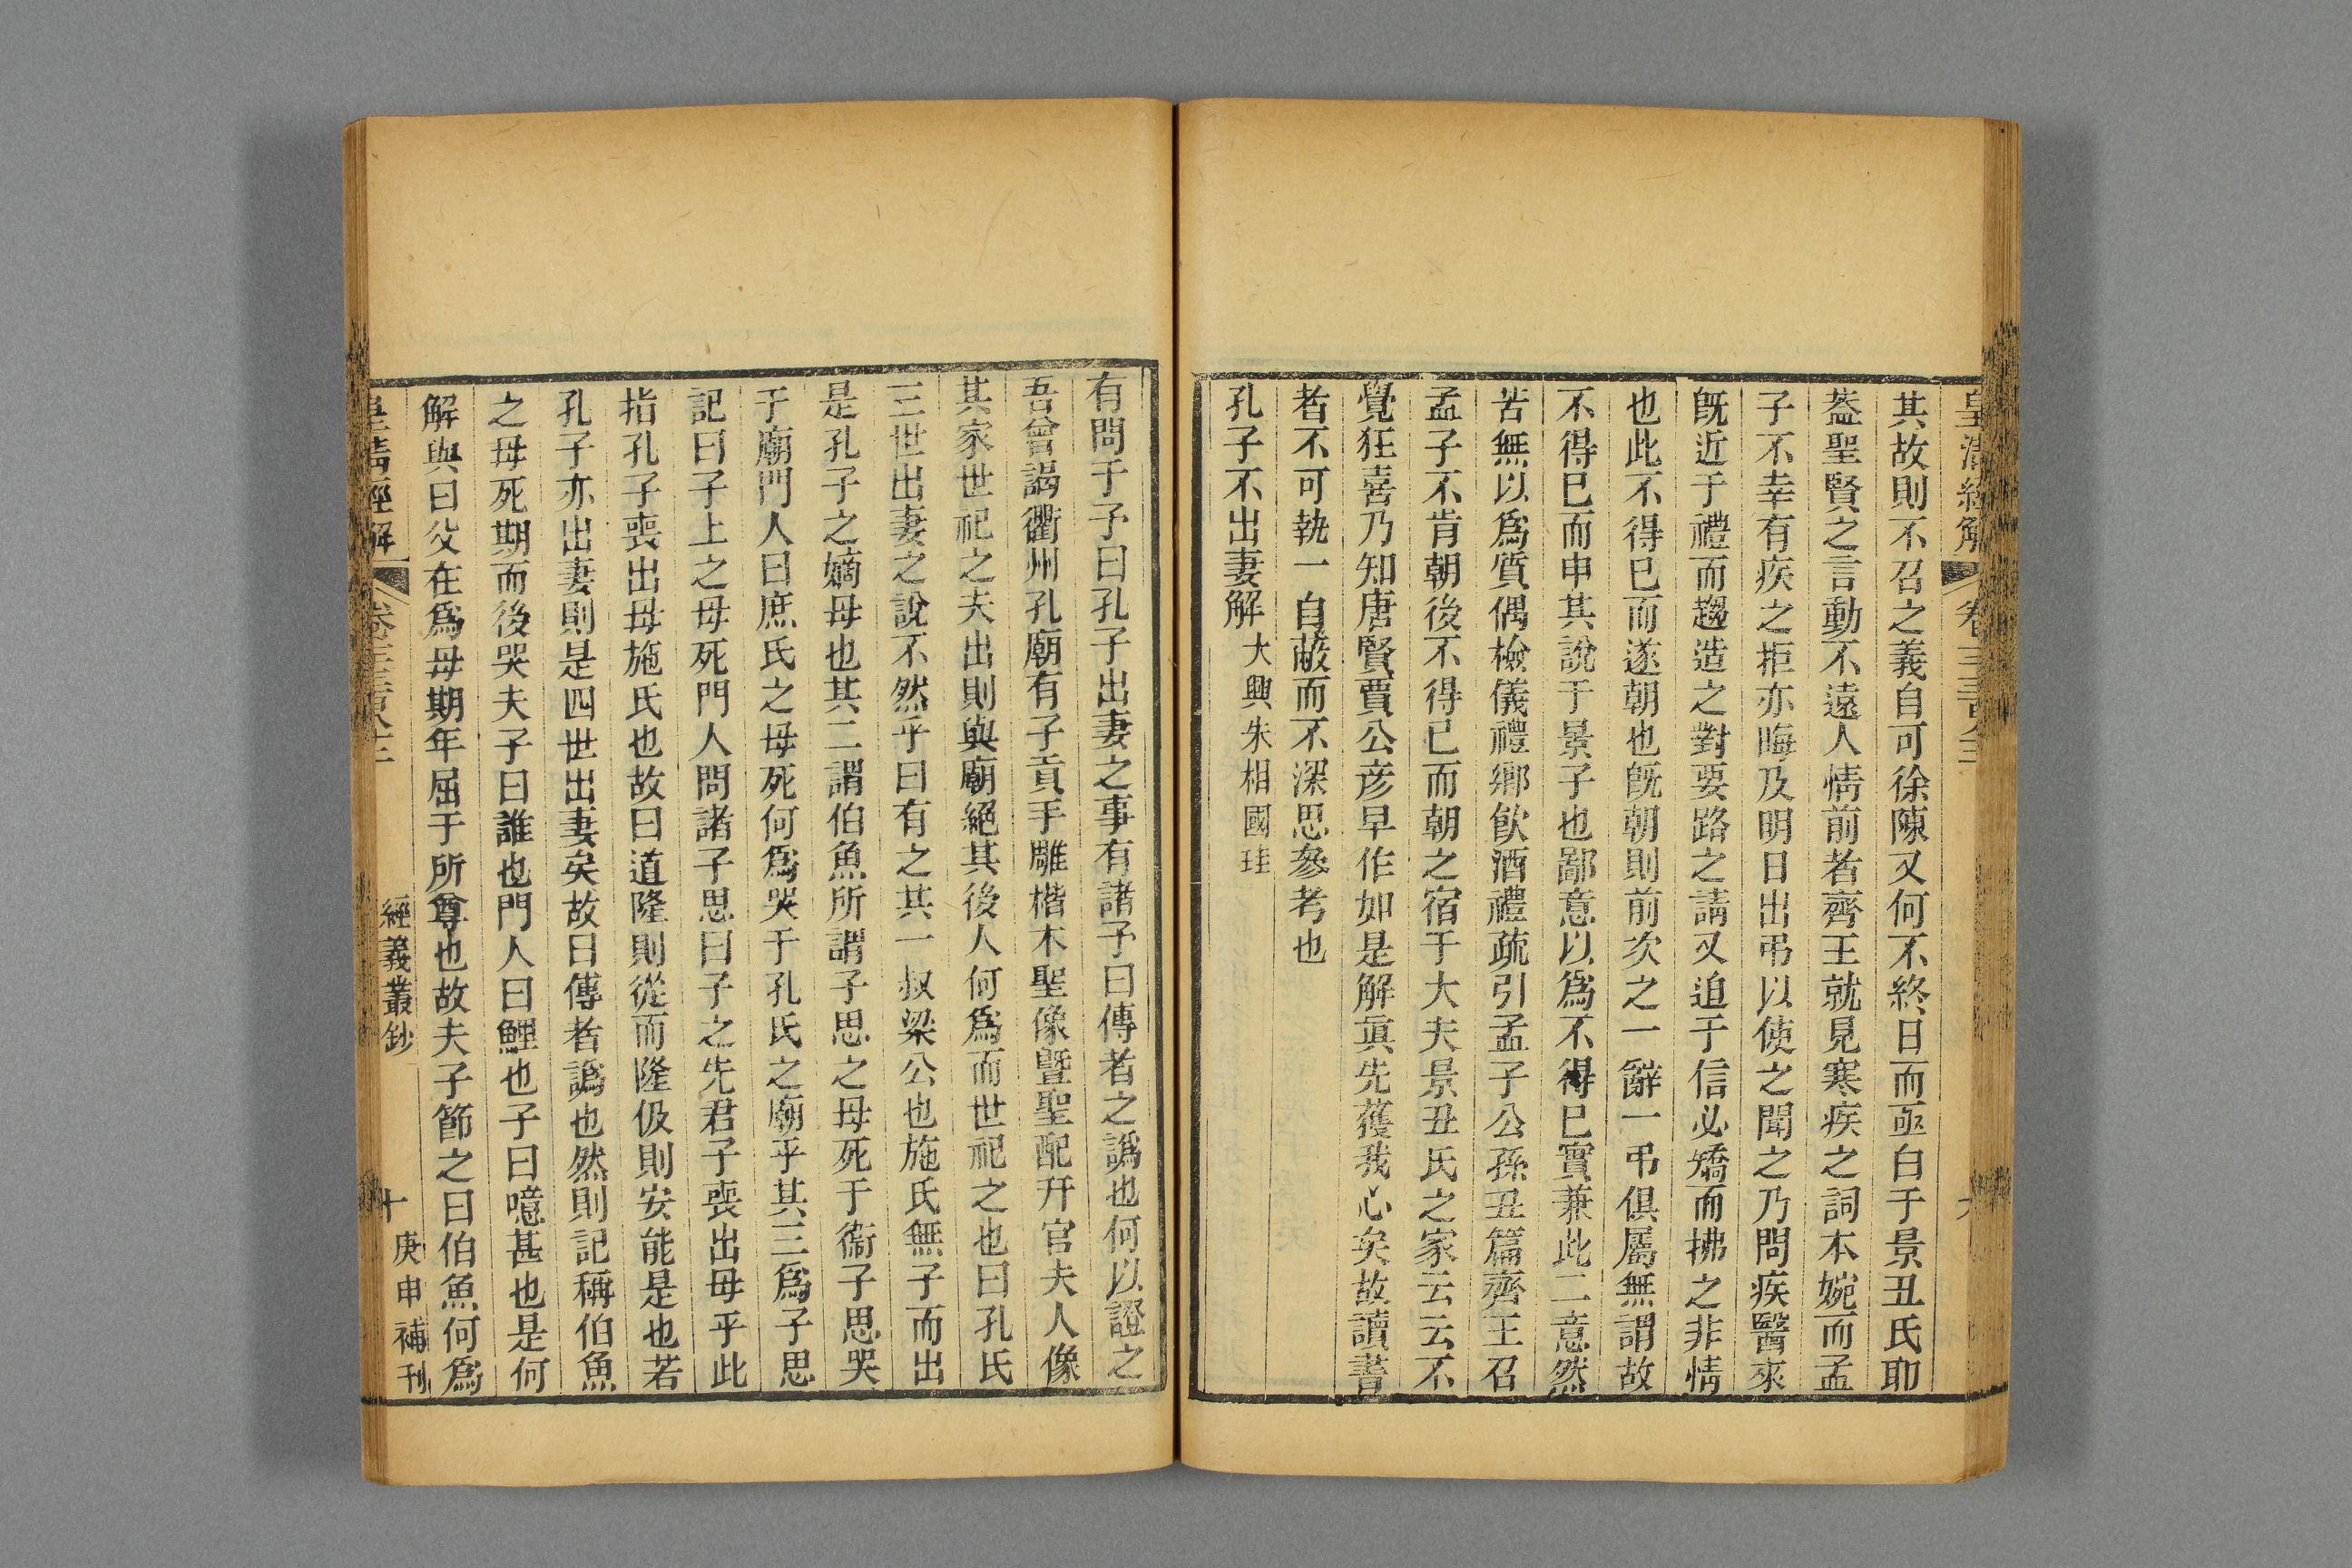 皇清經解
其故則不召之義自可徐陳又何不終日而亟白于景丑氏耶
葢聖賢之言動不遠人情前者齊王就見寒疾之詞本婉而孟
子不幸有疾之拒亦晦及明日出弔以使之聞之乃問疾醫來
旣近于禮而趨造之對要路之請又迫于信必矯而拂之非情
也此不得已而遂朝也旣朝則前次之一辭一弔俱屬無謂故
不得已而申其說于景子也鄙意以爲不得已實兼此二意然
苦無以爲質偶檢儀禮鄉飮酒禮疏引孟子公孫丑篇齊王召
孟子不肯朝後不得已而朝之宿于大夫景丑氏之家云云不
覺狂喜乃知唐賢賈公彦早作如是解眞先獲我心矣故讀書
者不可執一自蔽而不深思叅考也
孔子不出妻解 大興朱相國珪
有問于予曰孔子出妻之事有諸予曰傳者之譌也何以證之
吾曾謁衢州孔廟有子貢手雕楷木聖像曁聖配幵官夫人像
其家世祀之夫出則與廟絕其後人何爲而世祀之也曰孔氏
三世出妻之說不然乎曰有之其一叔梁公也施氏無子而出
是孔子之嫡母也其二謂伯魚所謂子思之母死于衞子思哭
于廟門人曰庶氏之母死何爲哭于孔氏之廟乎其三爲子思
記曰子上之母死門人問諸子思曰子之先君子喪出母乎此
指孔子喪出母施氏也故曰道隆則從而隆伋則安能是也若
孔子亦出妻則是四世出妻矣故曰傳者譌也然則記稱伯魚
之母死期而後哭夫子曰誰也門人曰鯉也子曰噫甚也是何
解與曰父在爲母期年屈于所尊也故夫子節之曰伯魚何爲
皇清經解
經義叢鈔
十
庚申補刊